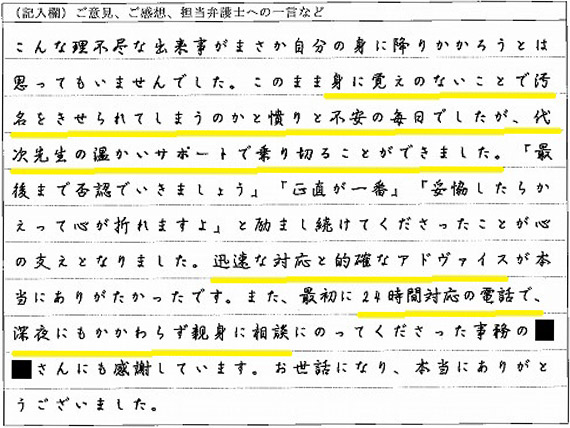 (記入欄)ご意見、ご感想、担当弁護士への一言など
こんな理不尽な出来事がまさか自分の身に降りかかろうとは
思ってもいませんでした。このまま身に覚えのないことで汚
名をきせられてしまうのかと憤りと不安の毎日でしたが、代
次先生の温かいサポートで乗り切ることができました。「最
後まで否認でいきましょう」「正直が一番」「妥協したらか
えって心が折れますよ」と励まし続けてくださったことが心
の支えとなりました。迅速な対応と的確なアドヴァイスが本
当にありがたかったです。また、最初に24時間対応の電話で、
深夜にもかかわらず親身に相談にのってくださった事務の
さんにも感謝しています。お世話になり、本当にありがと
うございました。